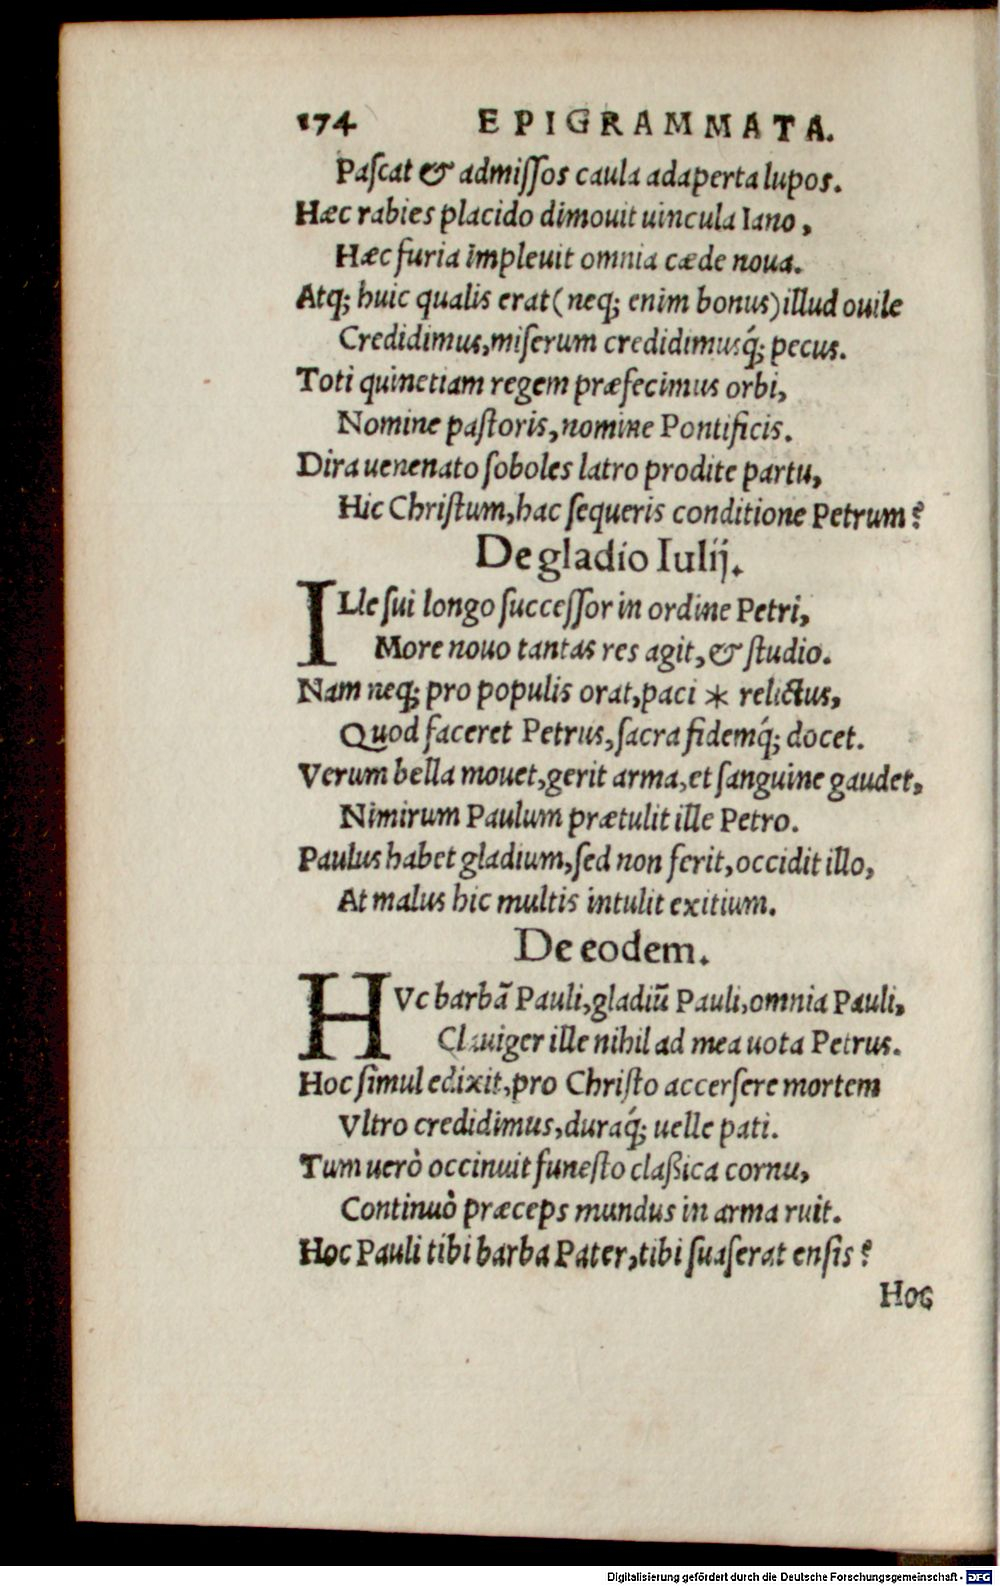 174 EPIGRAMMATA.
Paſcat & admiſſos caula adaperta lupos.
Hæc rabies placido dimouit uincula Iano,
Hæc furia impleuit omnia cæde noua.
Atq; huic qualis erat (neq; enim bonus) illud ouile
Credidimus, miſerum credidimusq́; pecus.
Toti quinetiam regem præfecimus orbi,
Nomine paſtoris, nomine Pontificis.
Dira uenenato ſoboles latro prodite partu,
Hic Chriſtum, hac ſequeris conditione Petrum?
De gladio Iulij.
ILle ſui longo ſucceſſor in ordine Petri,
More nouo tantas res agit, & ſtudio.
Nam neq; pro populis orat, paci * relictus,
Quod faceret Petrus, ſacra fidemq́; docet.
Verum bella mouet, gerit arma, et ſanguine gaudet,
Nimirum Paulum prætulit ille Petro.
Paulus habet gladium, ſed non ferit, occidit illo,
At malus hic multis intulit exitium.
De eodem.
HVc barbã Pauli, gladiũ Pauli, omnia Pauli,
Clauiger ille nihil ad mea uota Petrus.
Hoc ſimul edixit, pro Chriſto accerſere mortem
Vltro credidimus, duraq́; uelle pati.
Tum uerò occinuit funeſto claßica cornu,
Continuò præceps mundus in arma ruit.
Hoc Pauli tibi barba Pater, tibi ſuaſerat enſis?
Hoc
Digitalisierung gefördert durch die Deutsche Forschungsgemeinschaft - DFG